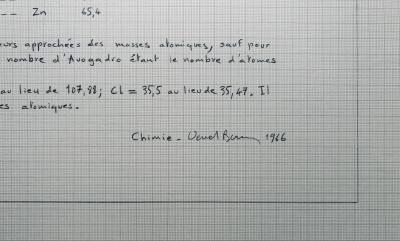 -- Zn 65,4
eurs approchées des masses atomiques, sauf pour
nombre d'Avogadro étant le nombre d'atomes
au lieu de 107,88; Cl = 35,5 au lieu de 35,47. Il
es atomiques.
Chimie - 1966